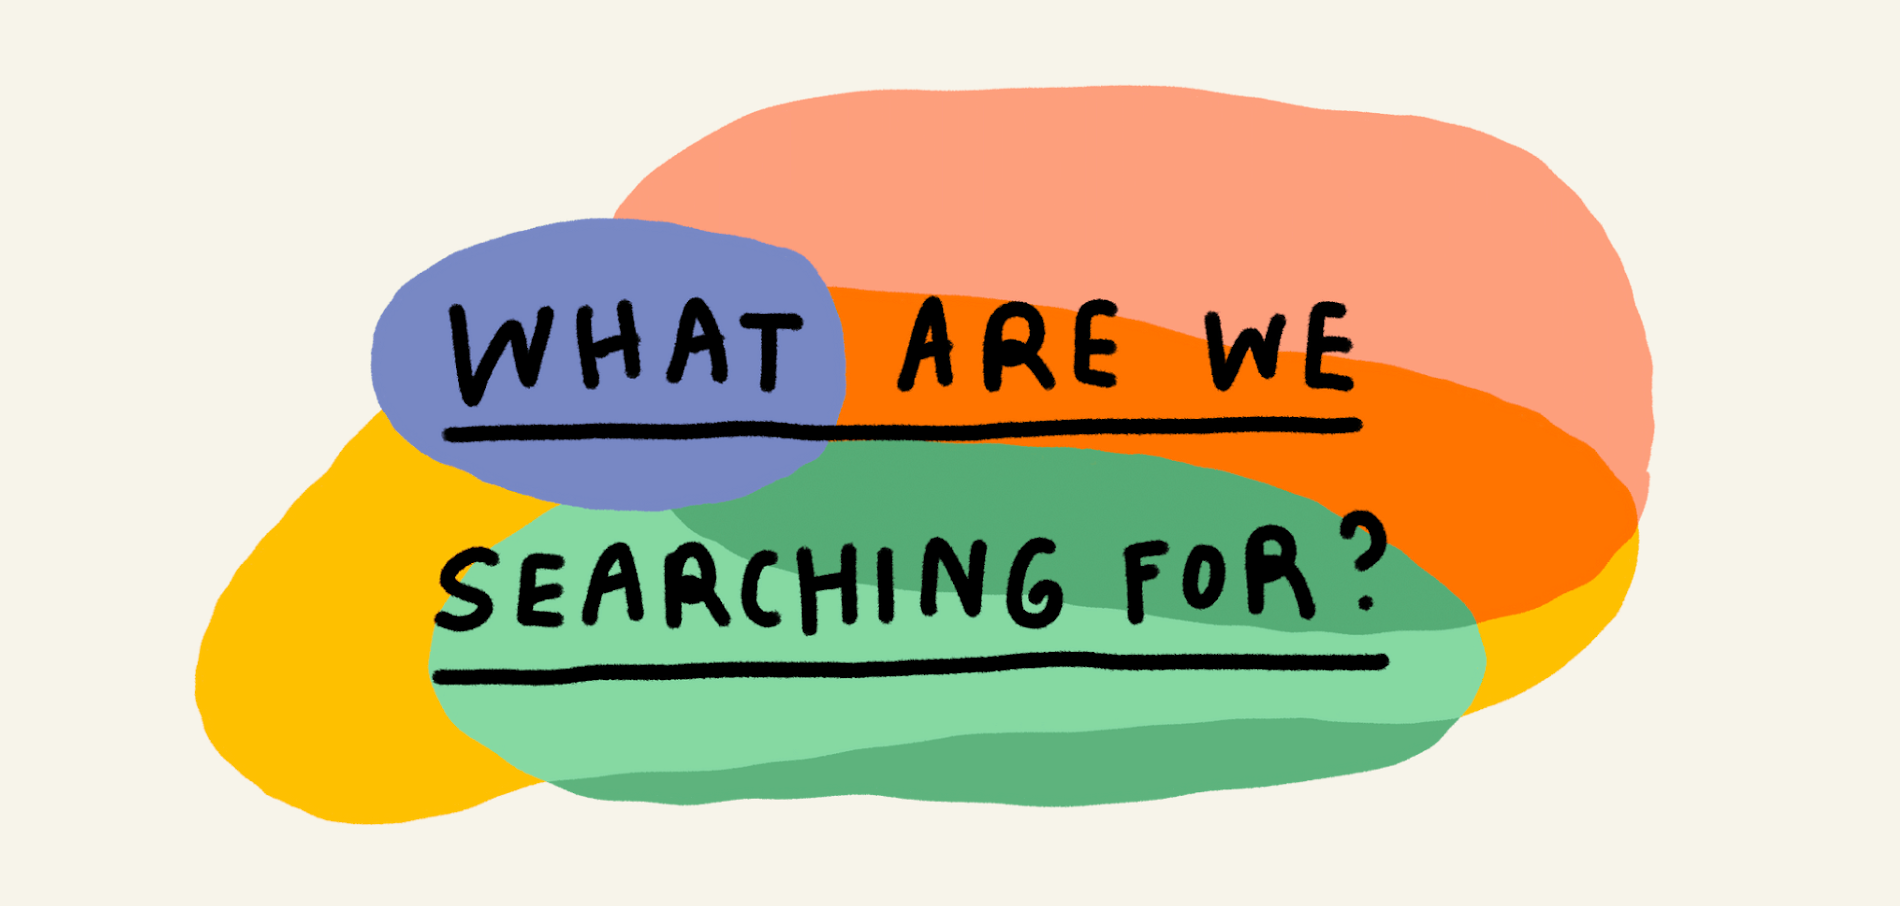 WHAT ARE WE
SEARCHING FOR?